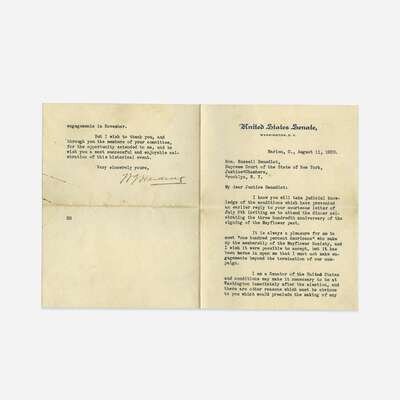 United States Senate,
WASHINGTON, D. C.
Marion, O., August 11, 1920.
Hon. Russell Benedict,
Supreme Court of the State of New York,
Justice's Chambers,
Brooklyn, N. Y.
My dear Justice Benedict:
I know you will take judicial know-
ledge of the conditions which have prevented
an earlier reply to your courteous letter of
July 8th inviting me to attend the dinner cele-
brating the three hundredth anniversary of the
signing of the Mayflower pact.
It is always a pleasure for me to
meet "one hundred percent Americans" who make
up the membership of the Mayflower Society, and
I wish it were possible to accept, but it has
been borne in upon me that I must not make en-
gagements beyond the termination of our cam-
paign.
I am a Senator of the United States
and conditions may make it necessary to be at
Washington immediately after the election, and
there are other reasons which must be obvious
to you which would preclude the making of any
engagements in November.
But I wish to thank you, and
through you the members of your committee,
for the opportunity extended to me, and to
wish you a most successful and enjoyable cel-
ebration of this historical event.
Very sincerely yours,
W G Harding